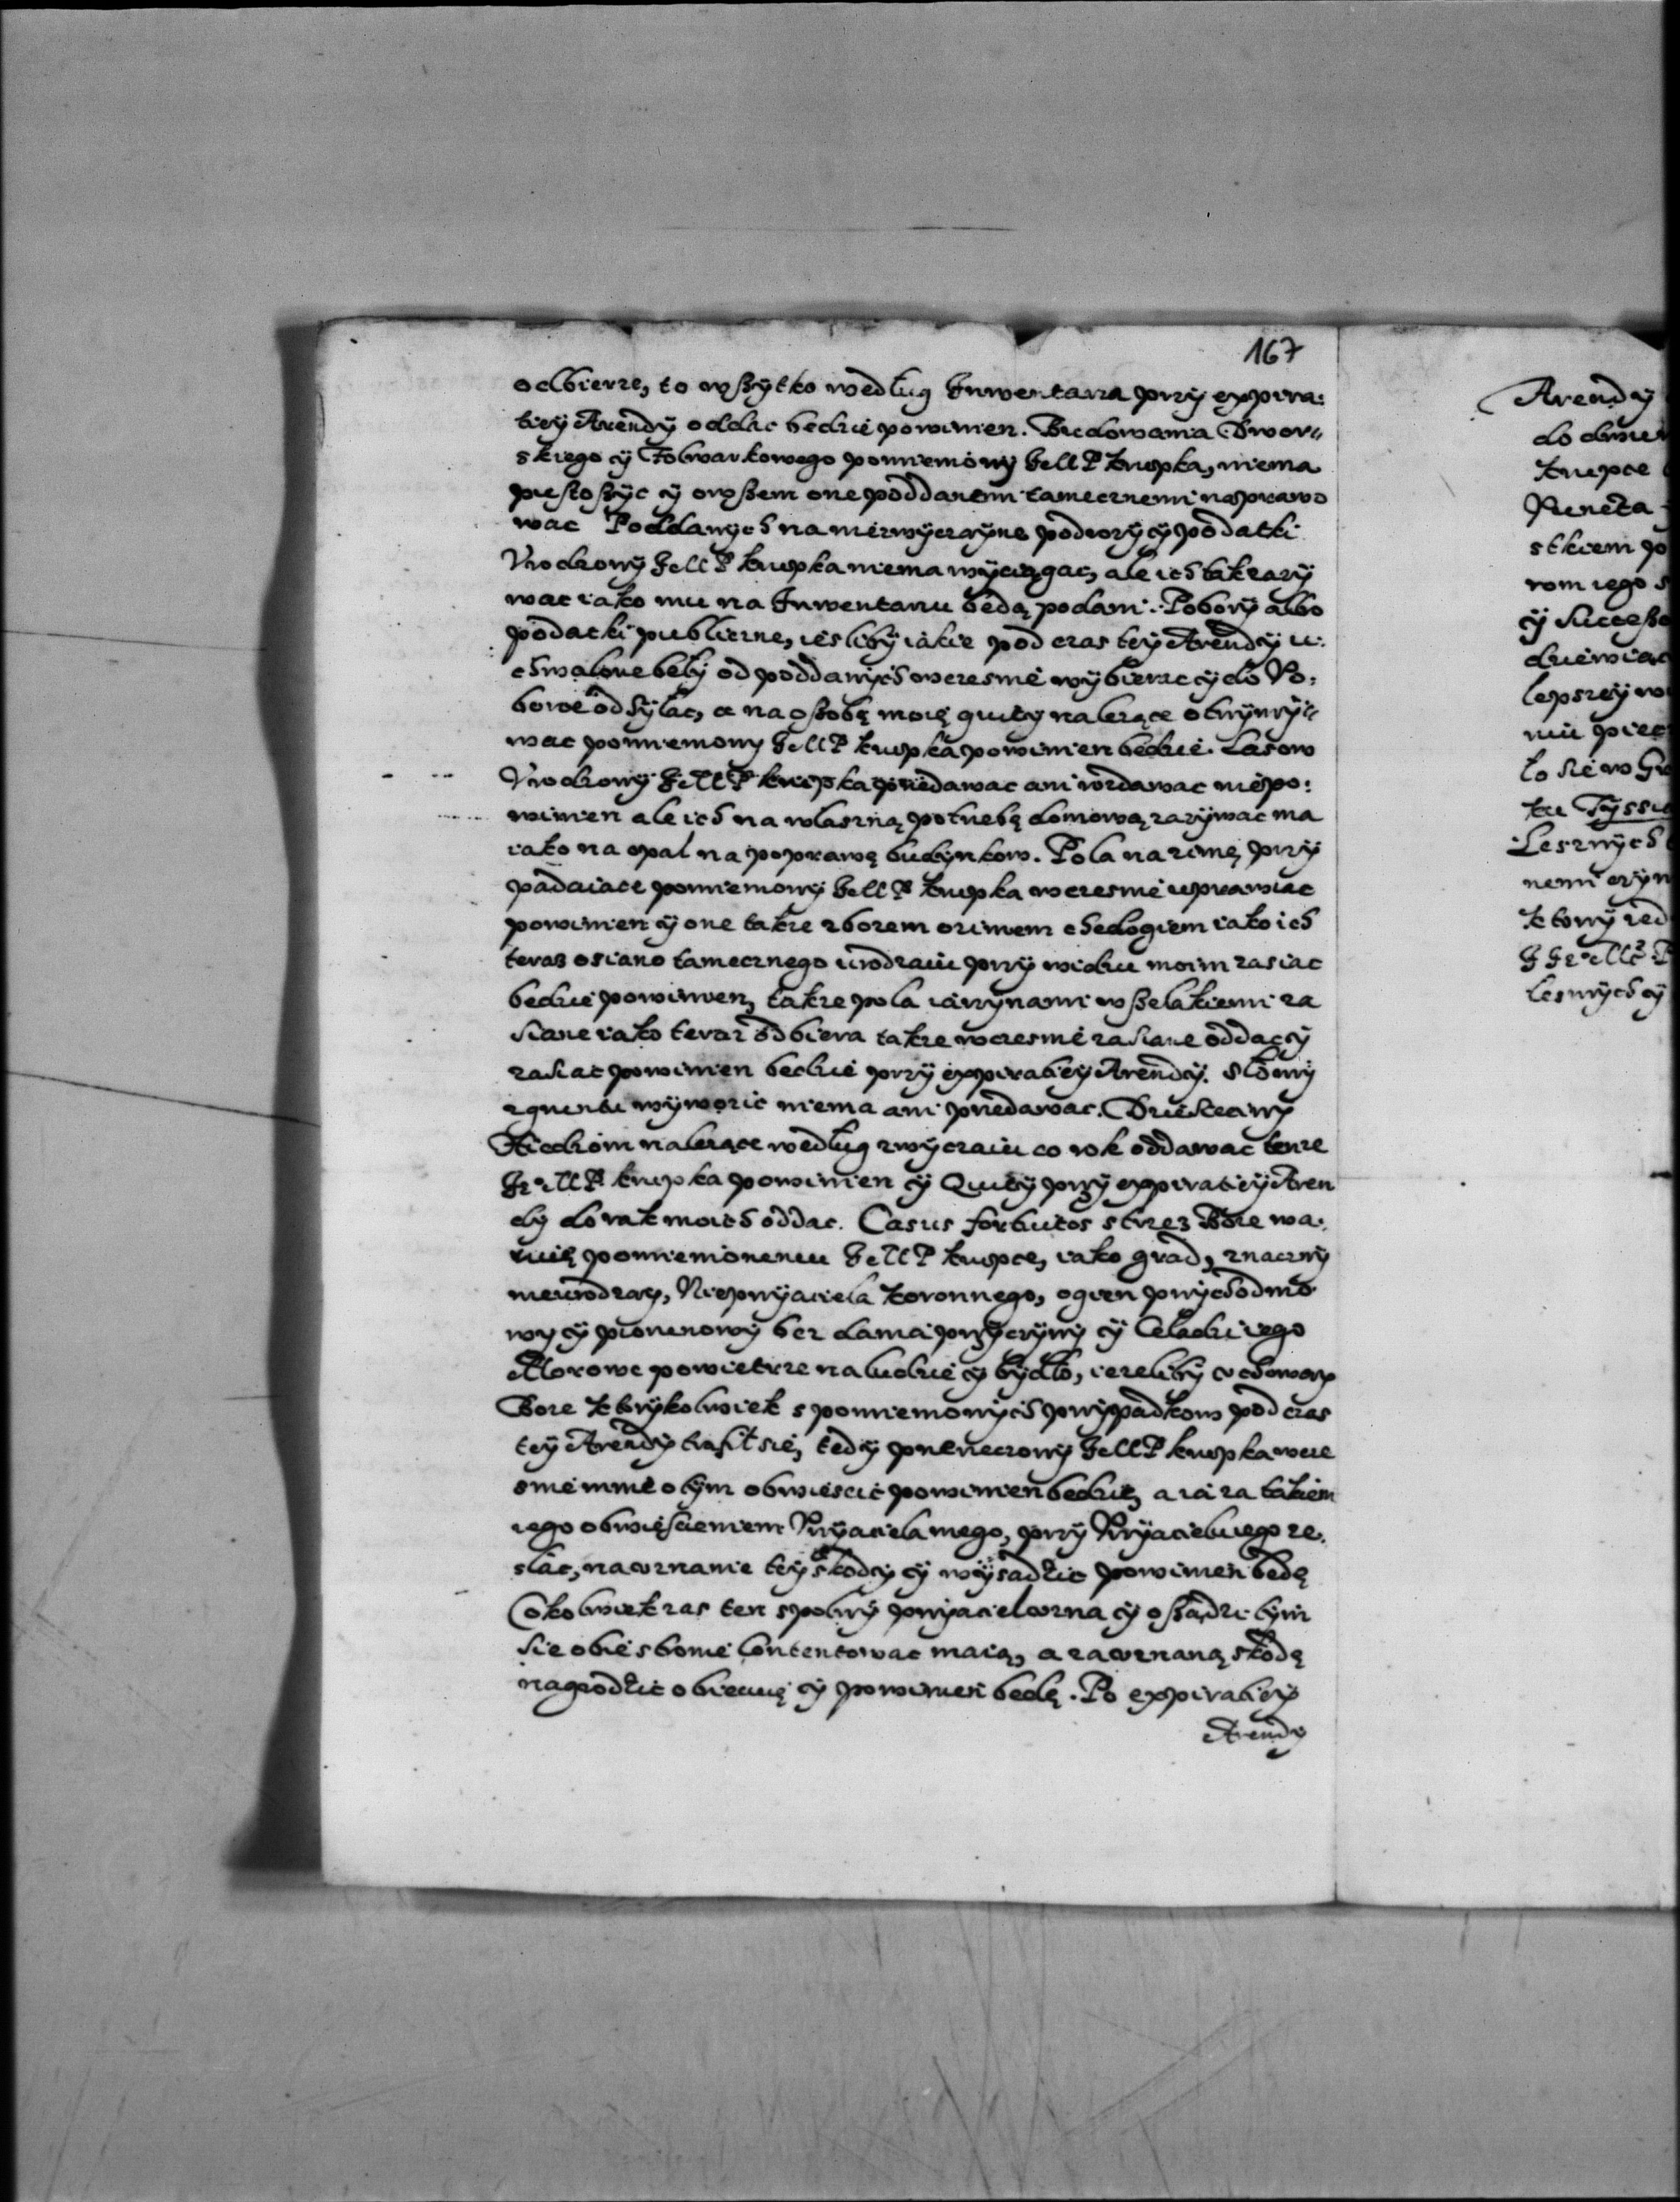 167
odbierze, to wszytko według Inwentarza przy expira:
tiey Arendy oddac bedzie powinien. Budowania Dwor=
skiego y Folwarkowego pomieniony JeMP Krupka, niema
pustoszyc y owszem one poddanemi tamecznemi naprawo
wac Poddanych na niezwyczayne podwory y podatki
Urodzony JeMP Krupka niema wyciągac, ale ich tak zazy
wac iako mu na Inwentarzu bedą podani. Pobory albo
podatki publiczne, iesliby iakie pod czas tey Arendy u:
chwalone bely od poddanych wczesnie wybierac y do Po:
borce odsylac, a na osobę moię quity nalezące otrzymy=
wac pomieniony JeMP Krupka powinien bedzie. Lasow
Urodzony JeMP Krupka przedawac ani wydawac niepo:
winien ale ich na wlasną potrzebę domową zazywac ma
iako na opal na poprawę budynkow. Pola na zimę przy
padaiące pomieniony JeMP Krupka wczesnie uprawiac
powinien y one takze zborem ozimem chędogiem iako ich
teraz osiano tamecznego urodzaiu przy widzu moim zasiac
bedzie powinien, takze pola iarzynami wszelakiemi za
siane iako teraz odbiera takze wczesnie zasiane oddac y
zasiac powinien bedzie przy expiratiey Arendy. Słomy
z gruntu wywozic niema ani przedawac. Dziesieciny
Xiedzom nalezące według zwyczaiu co rok oddawac tenze
JeoMP Krupka powinien y Quity przy expiratiey Aren
dy do rak moich oddac. Casus fortuitos strzez Boze wa:
ruię pomienionemu JeMP Krupce, iako grad, znaczny
nieurodzay, Nieprzyaciela Koronnego, ogien przychodnio
wy y pionerowy bez dania przyczyny y Celadzi iego
Morowe powietrze na ludzie y bydło, iezeliby uchoway
Boze ktorykolwiek s pomienionych przypadkow pod czas
tey Arendy trafił się, tedy przerzeczony JeMP Krupka wcze
snie mnie o tym obwiescic powinien bedzie, a ia za takiem
iego obwieszceniem Przyaciela mego, przy Przyacielu iego ze:
slac, na uznanie tey szkody y wysadzic powinien będę
Cokolwiek zas ten spolny przyaciel uzna y osądzi tym
sie obie stronie contentowac maią, a za uznaną szkodę
nagrodzic obiecuię y powinien będę. Po expiratiey
Arendy
Arendy
do obow
Krupce
Reneta
stkiem po
rom iego s
y Success
dziewiąc
lepszey
niu piec
lo sie w Gr
ku Tyssi
Lesznych
nemi
ktory zed
JJeoMc P
lesnych y